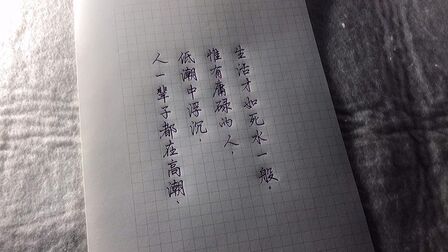 人一辈子都在高潮、
低潮中浮沉，
惟有庸碌的人，
生活才如死水一般。